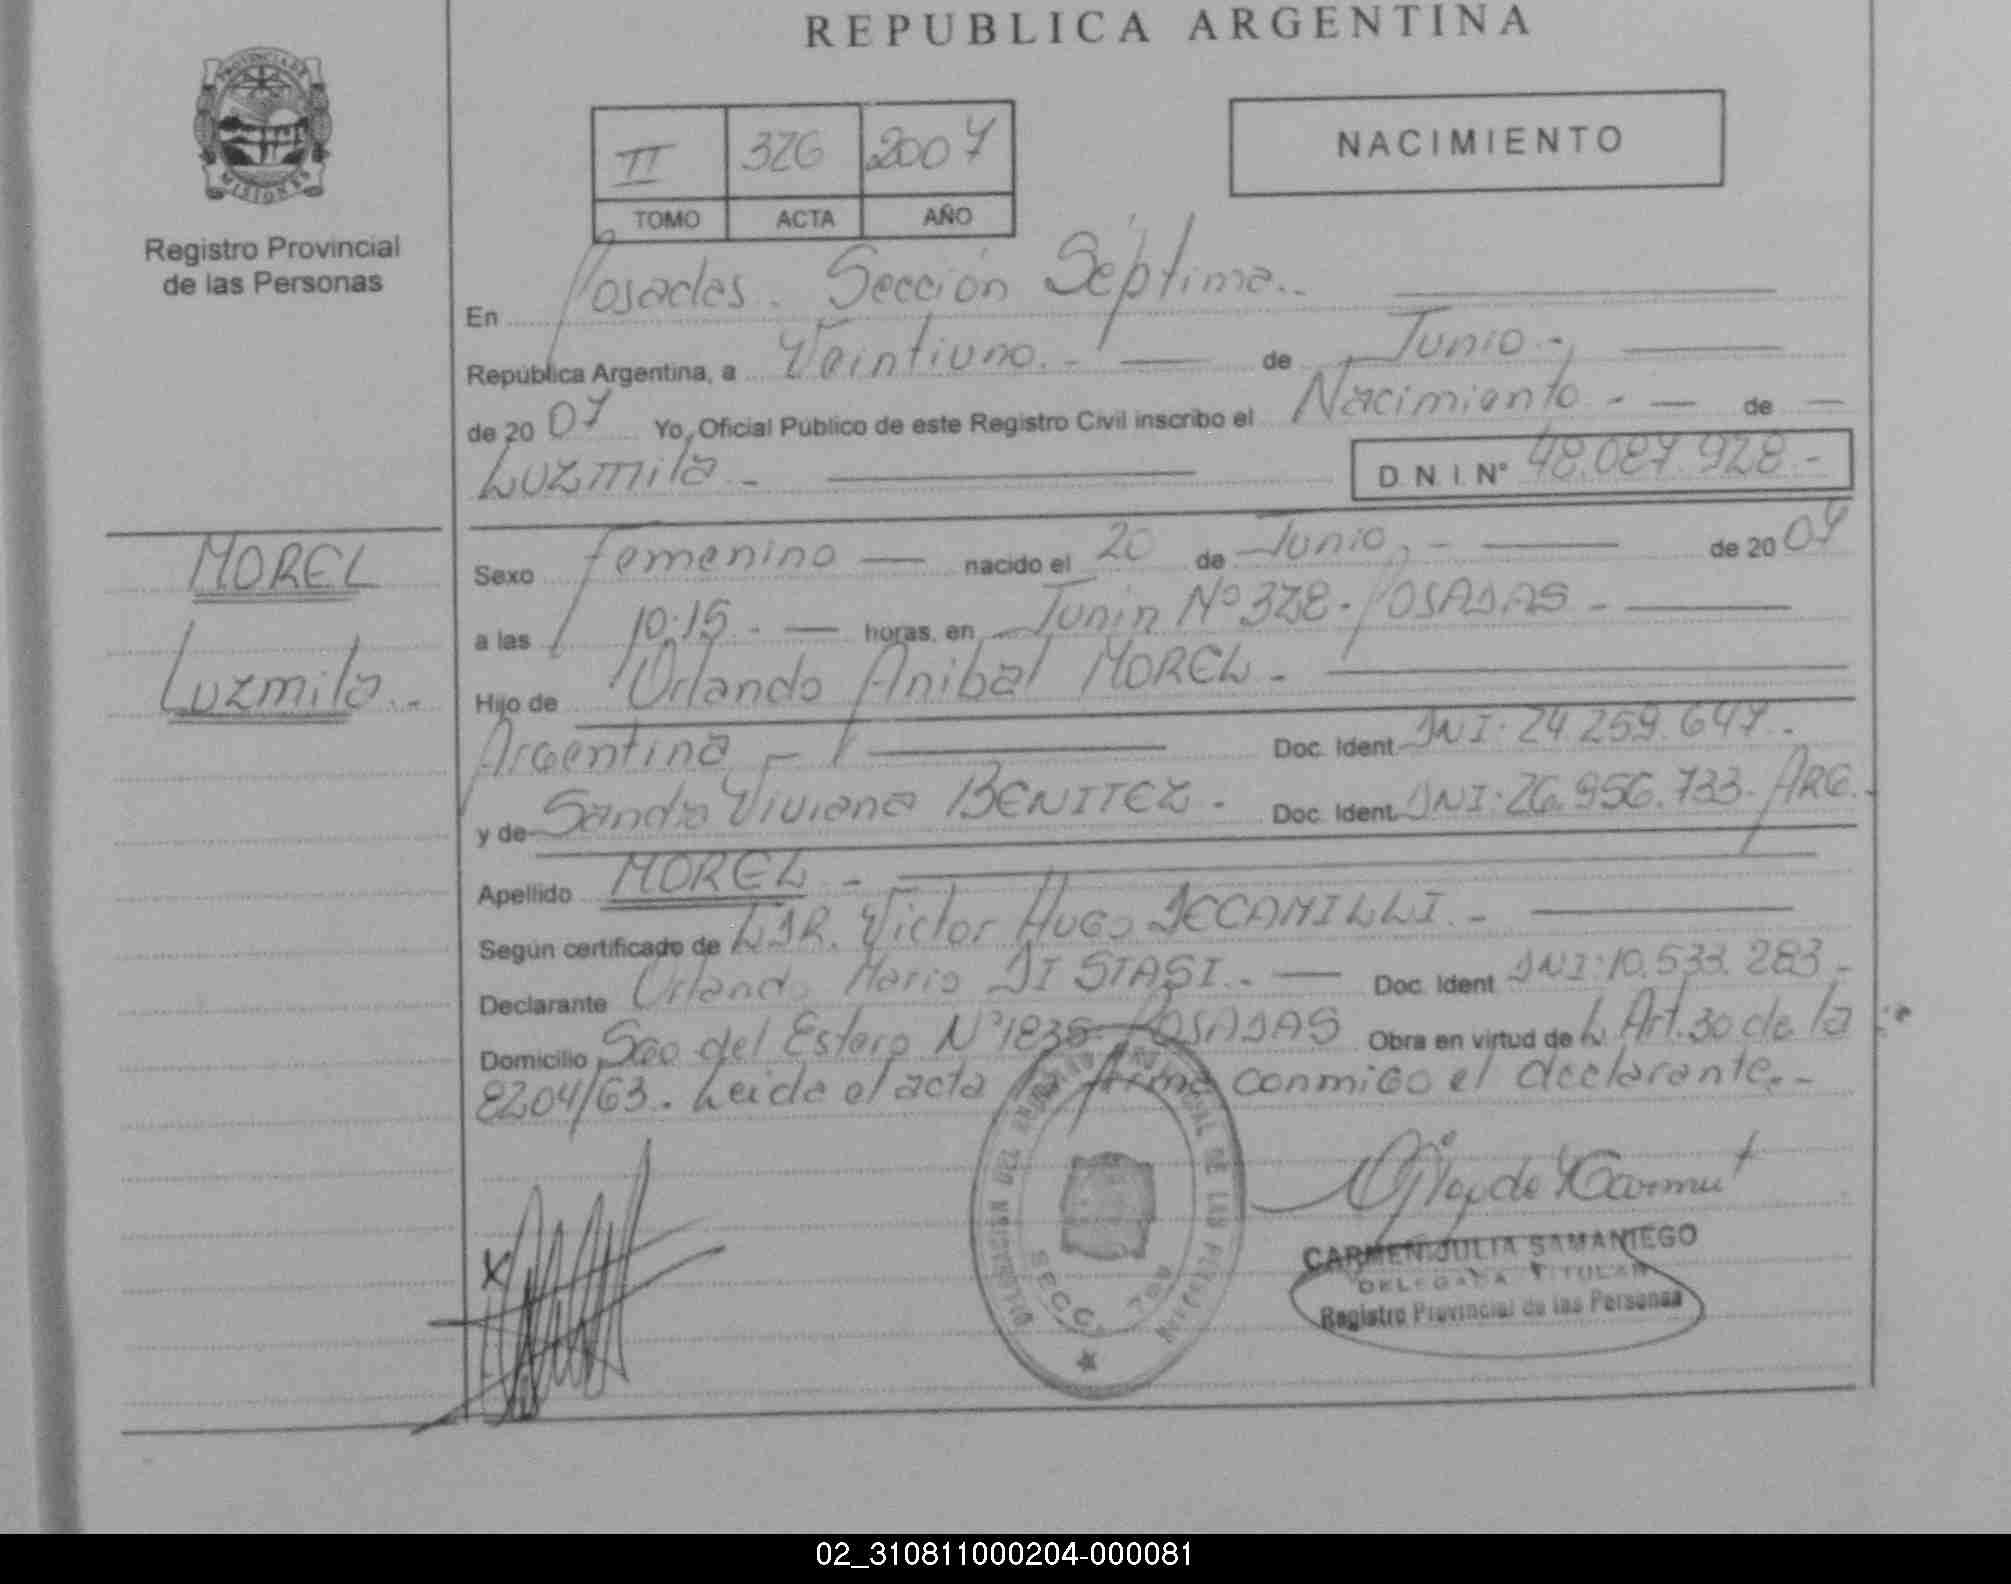 REPUBLICA ARGENTINA
PROVINCIA DE
MISIONES
Registro Provincial
de las Personas
II 326 2007
TOMO ACTA AÑO
NACIMIENTO
En Posadas. Sección Séptima.-
República Argentina, a Veintiuno.- de Junio.-
de 2007 Yo, Oficial Público de este Registro Civil inscribo el Nacimiento - de
Luzmila.- D.N.I. N° 48.087.928.-
MOREL
Luzmila.-
Sexo femenino nacido el 20 de Junio.- de 2007
a las 10:15.- horas, en Junin Nº 328- POSADAS -
Hijo de Orlando Anibal MOREL -
Argentina - Doc. Ident. DNI: 24.259.647.-
y de Sandra Viviana BENITEZ - Doc. Ident. DNI: 26.956.733- ARG.-
Apellido MOREL -
Según certificado de Victor Hugo DECAMILLI.-
Declarante Orlando Mario DI STASI.- Doc. Ident. DNI: 10.533.283-
Domicilio Sgo del Estero Nº 1836- POSADAS Obra en virtud de L. Art. 30 de la
8204/63. Leida el acta la firma conmigo el declarante.-
X
SECC. 7ma
CARMEN JULIA SAMANIEGO
DELEGADA TITULAR
Registro Provincial de las Personas
02_310811000204-000081